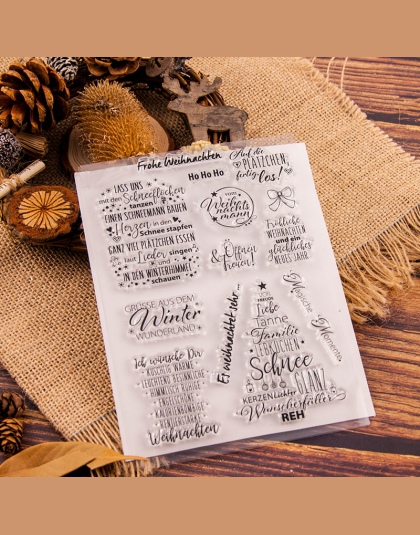 Frohe Weihnachten
Auf die
PLÄTZCHEN,
fertig
Los!
Ho Ho Ho
LASS UNS
mit den Schneeflocken
tanzen
EINEN SCHNEEMANN BAUEN
Herzen in den
Schnee stapfen
GANZ VIEL PLÄTZCHEN ESSEN
laut Lieder singen
und
IN DEN WINTERHIMMEL
schauen
Weihnachts
mann
Fröhliche
WEIHNACHTEN
und ein
glückliches
NEUES JAHR.
Öffnen
& Freuen!
GRÜSSE AUS DEM
Winter
WUNDERLAND
Es weihnachtet sehr...
Magische
Momente
Liebe
Tanne
Familie
PLÄTZCHEN
Schnee
GLANZ
KERZENLICHT
Wunscherfüller
REH
Ich wünsche Dir
KUSCHLIG WARME
LEUCHTEND BESINNLICHE
Weihnachten